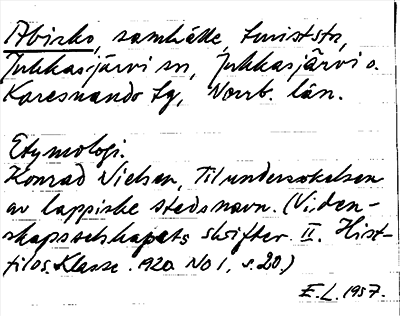 Abisko, samhälle, turiststn,
Jukkasjärvi sn, Jukkasjärvi o.
Karesuando tg, Norrb. län.
Etymologi.
Konrad Nielsen, Til undersøkelsen
av lappiske stedsnavn. (Viden-
skapsselskapets skrifter. II. Hist-
filos. Klasse. 1920. No 1, s. 20.)
E.L. 1957.